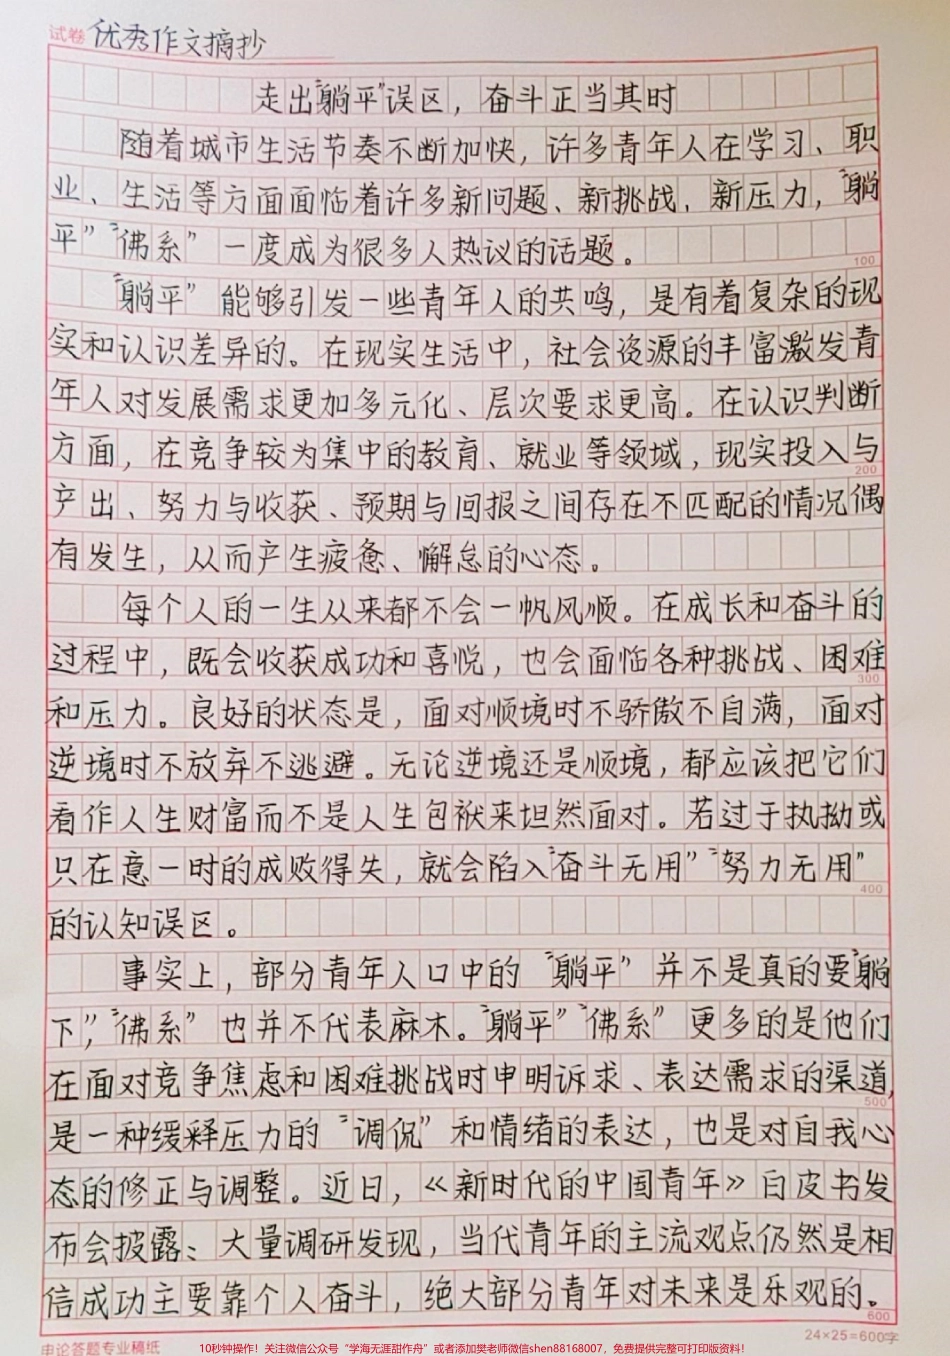 试卷 优秀作文摘抄
走出“躺平”误区，奋斗正当其时
随着城市生活节奏不断加快，许多青年人在学习、职
业、生活等方面面临着许多新问题、新挑战、新压力，“躺
平”“佛系”一度成为很多人热议的话题。
100
“躺平”能够引发一些青年人的共鸣，是有着复杂的现
实和认识差异的。在现实生活中，社会资源的丰富激发青
年人对发展需求更加多元化、层次要求更高。在认识判断
方面，在竞争较为集中的教育、就业等领域，现实投入与
200
产出、努力与收获、预期与回报之间存在不匹配的情况偶
有发生，从而产生疲惫、懈怠的心态。
每个人的一生从来都不会一帆风顺。在成长和奋斗的
过程中，既会收获成功和喜悦，也会面临各种挑战、困难
300
和压力。良好的状态是，面对顺境时不骄傲不自满，面对
逆境时不放弃不逃避。无论逆境还是顺境，都应该把它们
看作人生财富而不是人生包袱来坦然面对。若过于执拗或
只在意一时的成败得失，就会陷入“奋斗无用”“努力无用”
400
的认知误区。
事实上，部分青年人口中的“躺平”并不是真的要“躺
下”，“佛系”也并不代表麻木。“躺平”“佛系”更多的是他们
在面对竞争焦虑和困难挑战时申明诉求、表达需求的渠道，
500
是一种缓释压力的“调侃”和情绪的表达，也是对自我心
态的修正与调整。近日，《新时代的中国青年》白皮书发
布会披露、大量调研发现，当代青年的主流观点仍然是相
信成功主要靠个人奋斗，绝大部分青年对未来是乐观的。
600
申论答题专业稿纸 24×25=600字
10秒钟操作！关注微信公众号“学海无涯甜作舟”或者添加樊老师微信shen88168007，免费提供完整可打印版资料！